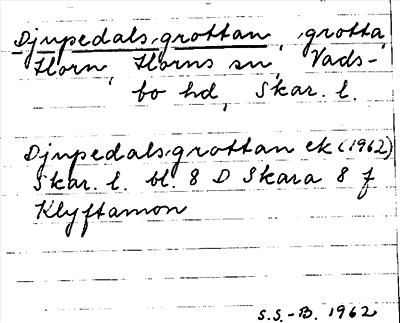 Djupedals,grottan, grotta,
Horn, Horns sn, Vads-
bo hd, Skar. l.
Djupedals,grottan ek (1962)
Skar. l. bl. 8 D Skara 8 f
Klyftamon
S.S.-B. 1962